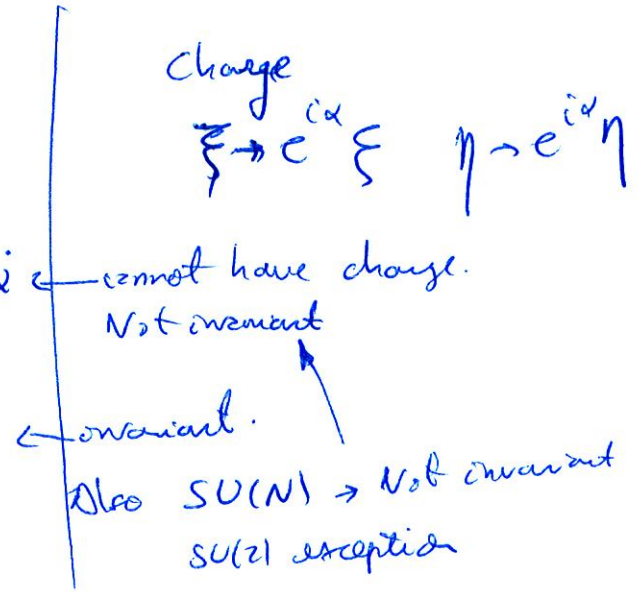 Charge
ξ → e^{iα} ξ   η → e^{iα} η
i ← cannot have charge.
Not invariant
← invariant.
Also SU(N) → Not invariant
SU(2) exception